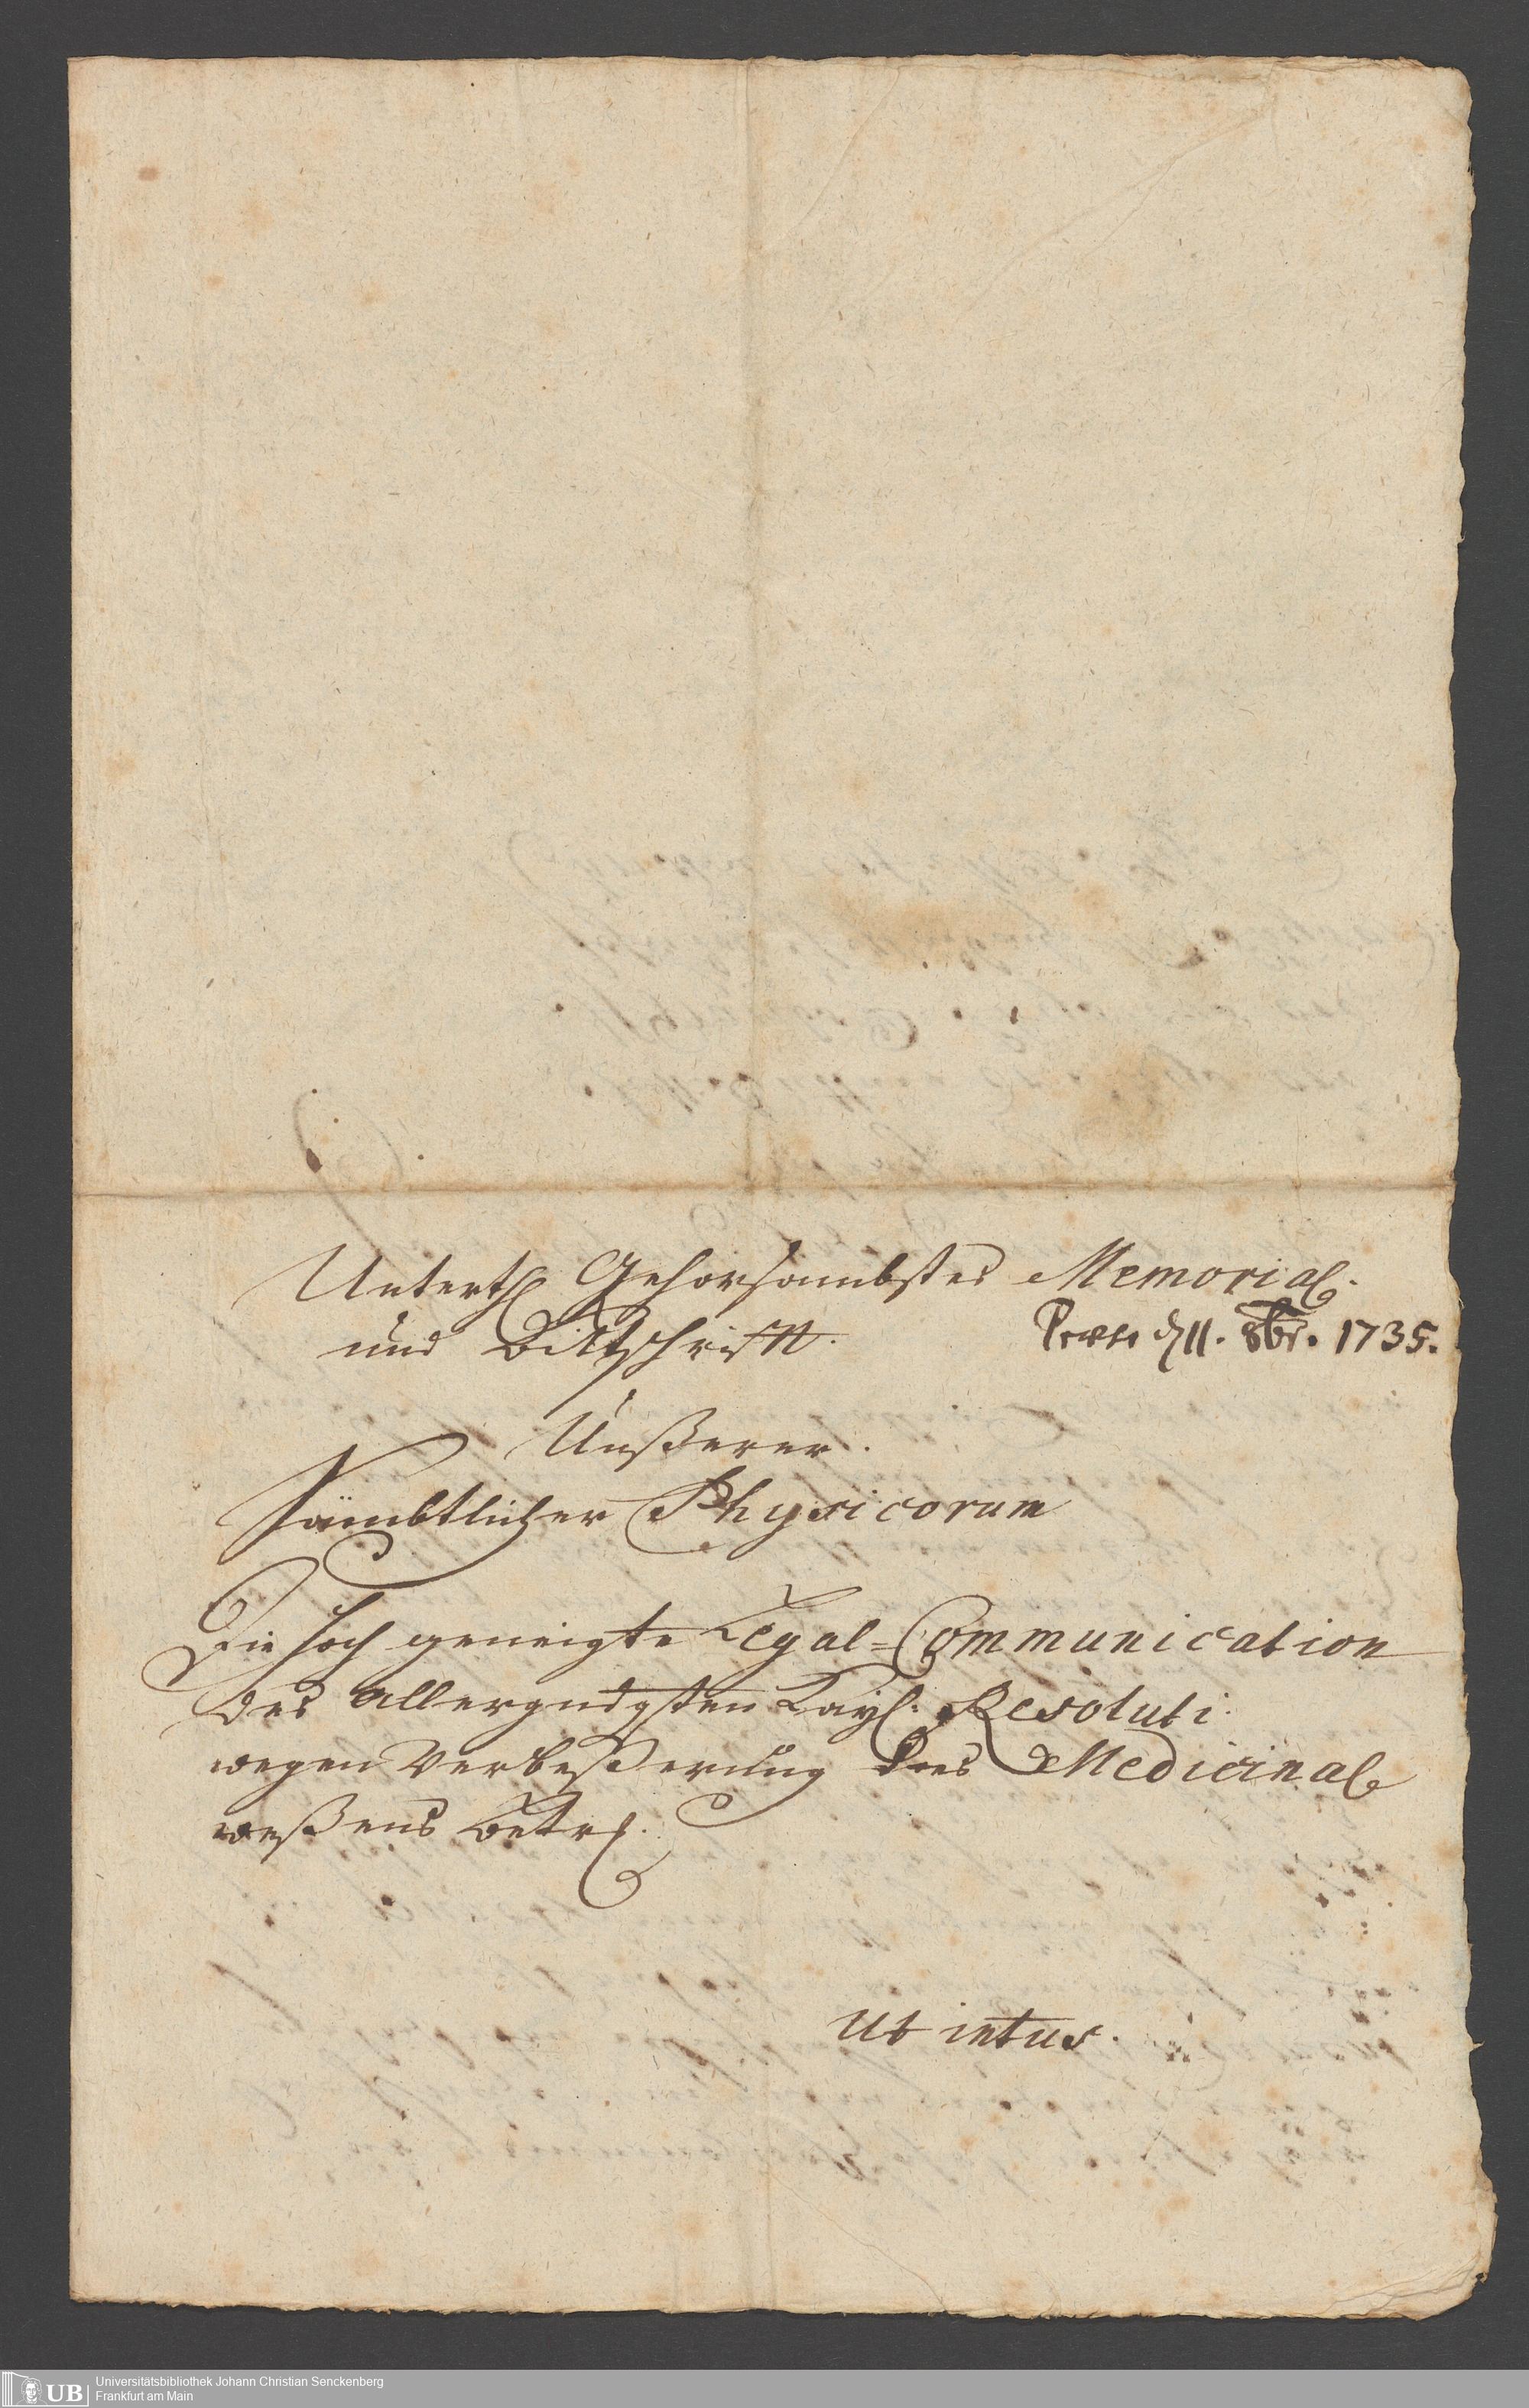 Unterth. Gehorsambstes Memorial.
und Bittschrifft.
Praes. d. 11. 8br. 1735.
Unßerer.
Sämbtlicher Physicorum
Die hoch geneigte Legal=Communication
des allergndgsten Kayl. Resoluti.
wegen Verbeßerung des Medicinal
weßens betr.
Ut intus.
UB Universitätsbibliothek Johann Christian Senckenberg
Frankfurt am Main